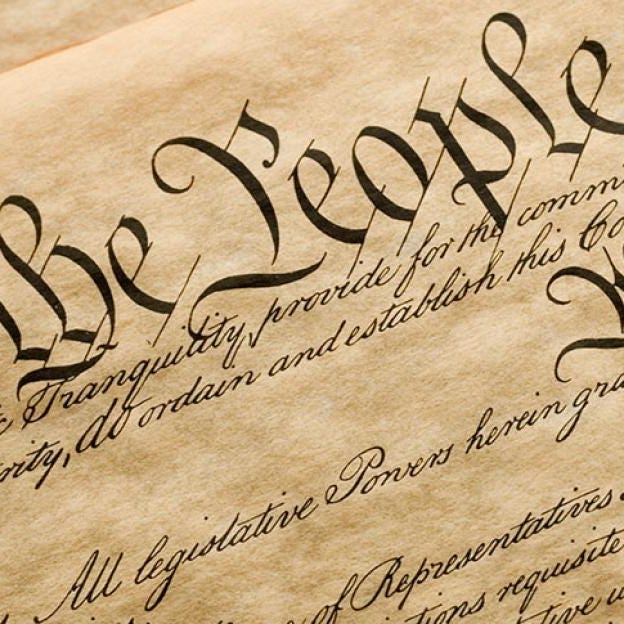 the People
c Tranquility, provide for the comm
rity, do ordain and establish this Co
All legislative Powers herein gra
of Representatives
tions requisite
tive